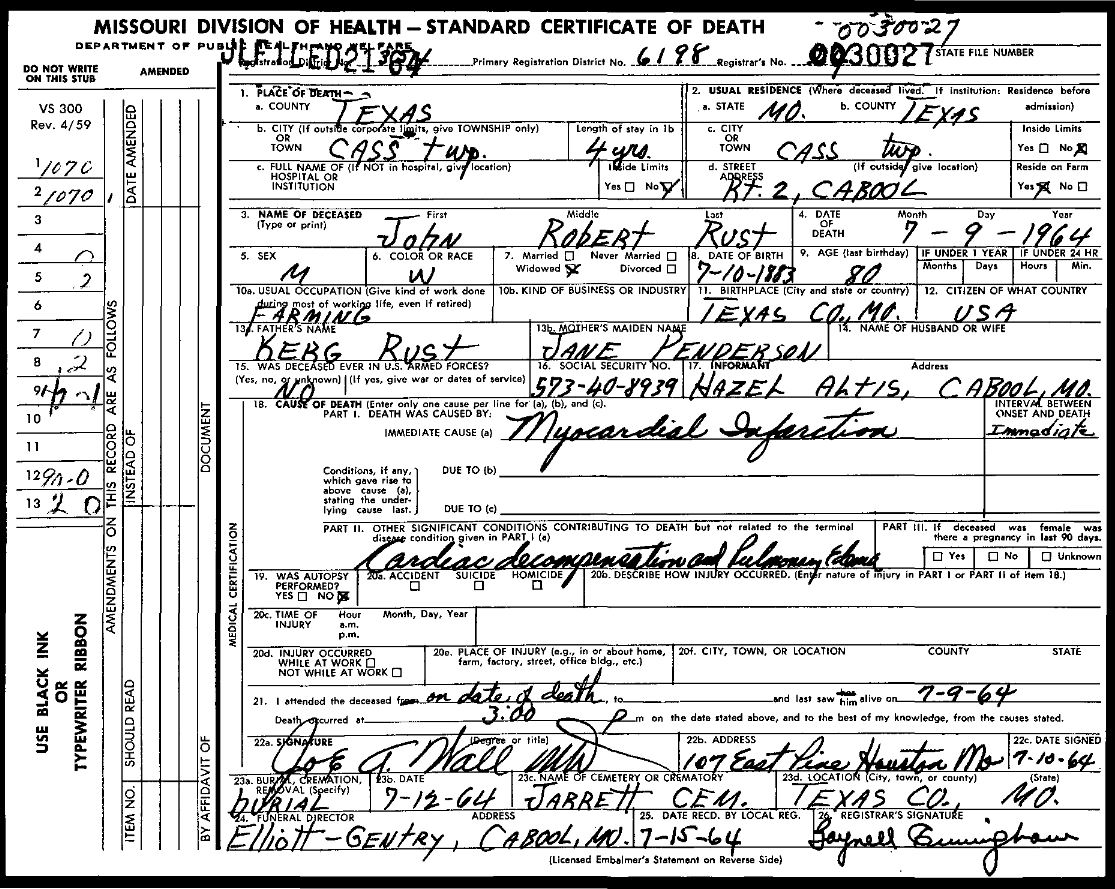 MISSOURI DIVISION OF HEALTH — STANDARD CERTIFICATE OF DEATH
DEPARTMENT OF PUBLIC HEALTH AND WELFARE
0030027
FILED
Primary Registration District No. 6198 Registrar's No. 0030027 STATE FILE NUMBER
DO NOT WRITE ON THIS STUB
AMENDED
VS 300
Rev. 4/59
1 1070
2 1070
3
4 0
5 2
6
7 0
8 2
9
10
11
12 90-0
13 2 0
USE BLACK INK
OR
TYPEWRITER RIBBON
AMENDMENTS ON THIS RECORD ARE AS FOLLOWS
DATE AMENDED
INSTEAD OF
SHOULD READ
ITEM NO.
DOCUMENT
BY AFFIDAVIT OF
MEDICAL CERTIFICATION
1. PLACE OF DEATH
a. COUNTY TEXAS
2. USUAL RESIDENCE (Where deceased lived. If institution: Residence before admission)
a. STATE MO. b. COUNTY TEXAS
b. CITY (If outside corporate limits, give TOWNSHIP only) OR TOWN CASS twp.
Length of stay in 1b 4 yrs.
c. CITY OR TOWN CASS twp.
Inside Limits Yes No
c. FULL NAME OF (If NOT in hospital, give location) HOSPITAL OR INSTITUTION
Inside Limits Yes No
d. STREET ADDRESS (If outside, give location) Rt. 2, CABOOL
Reside on Farm Yes No
3. NAME OF DECEASED (Type or print) First Middle Last
JOHN ROBERT RUST
4. DATE OF DEATH Month Day Year
7 - 9 - 1964
5. SEX M
6. COLOR OR RACE W
7. Married Never Married Widowed Divorced
8. DATE OF BIRTH 7-10-1883
9. AGE (last birthday) 80
IF UNDER 1 YEAR Months Days
IF UNDER 24 HR Hours Min.
10a. USUAL OCCUPATION (Give kind of work done during most of working life, even if retired) FARMING
10b. KIND OF BUSINESS OR INDUSTRY
11. BIRTHPLACE (City and state or country) TEXAS CO., MO.
12. CITIZEN OF WHAT COUNTRY USA
13a. FATHER'S NAME KERG RUST
13b. MOTHER'S MAIDEN NAME JANE PENDERSON
14. NAME OF HUSBAND OR WIFE
15. WAS DECEASED EVER IN U.S. ARMED FORCES? (Yes, no, or unknown) (If yes, give war or dates of service) NO
16. SOCIAL SECURITY NO. 573-40-8939
17. INFORMANT Address HAZEL ALTIS, CABOOL, MO.
18. CAUSE OF DEATH (Enter only one cause per line for (a), (b), and (c).
PART I. DEATH WAS CAUSED BY:
IMMEDIATE CAUSE (a) Myocardial Infarction
INTERVAL BETWEEN ONSET AND DEATH Immediate
Conditions, if any, which gave rise to above cause (a), stating the underlying cause last.
DUE TO (b)
DUE TO (c)
PART II. OTHER SIGNIFICANT CONDITIONS CONTRIBUTING TO DEATH but not related to the terminal disease condition given in PART I (a)
Cardiac decompensation and Pulmonary Edema
PART III. If deceased was female was there a pregnancy in last 90 days.
Yes No Unknown
19. WAS AUTOPSY PERFORMED? YES NO
20a. ACCIDENT SUICIDE HOMICIDE
20b. DESCRIBE HOW INJURY OCCURRED. (Enter nature of injury in PART I or PART II of item 18.)
20c. TIME OF INJURY Hour a.m. p.m. Month, Day, Year
20d. INJURY OCCURRED WHILE AT WORK NOT WHILE AT WORK
20e. PLACE OF INJURY (e.g., in or about home, farm, factory, street, office bldg., etc.)
20f. CITY, TOWN, OR LOCATION COUNTY STATE
21. I attended the deceased from on date of death, to and last saw him alive on 7-9-64
Death occurred at 3:00 P m on the date stated above, and to the best of my knowledge, from the causes stated.
22a. SIGNATURE (Degree or title) Joe A. Wall MD
22b. ADDRESS 107 East Pine Houston Mo
22c. DATE SIGNED 7-10-64
23a. BURIAL, CREMATION, REMOVAL (Specify) BURIAL
23b. DATE 7-12-64
23c. NAME OF CEMETERY OR CREMATORY JARRETT CEM.
23d. LOCATION (City, town, or county) (State) TEXAS CO., MO.
24. FUNERAL DIRECTOR ADDRESS Elliott-GENTRY, CABOOL, MO.
25. DATE RECD. BY LOCAL REG. 7-15-64
26. REGISTRAR'S SIGNATURE Gaynell Cunningham
(Licensed Embalmer's Statement on Reverse Side)